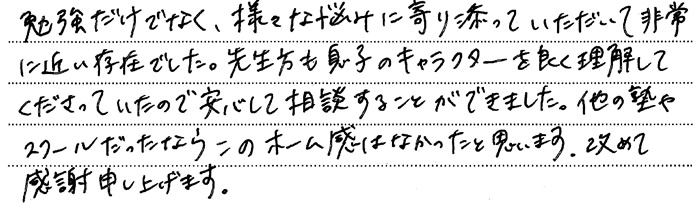 勉強だけでなく、様々な悩みに寄り添っていただいて非常
に近い存在でした。先生方も息子のキャラクターを良く理解して
くださっていたので安心して相談することができました。他の塾や
スクールだったならこのホーム感はなかったと思います。改めて
感謝申し上げます。